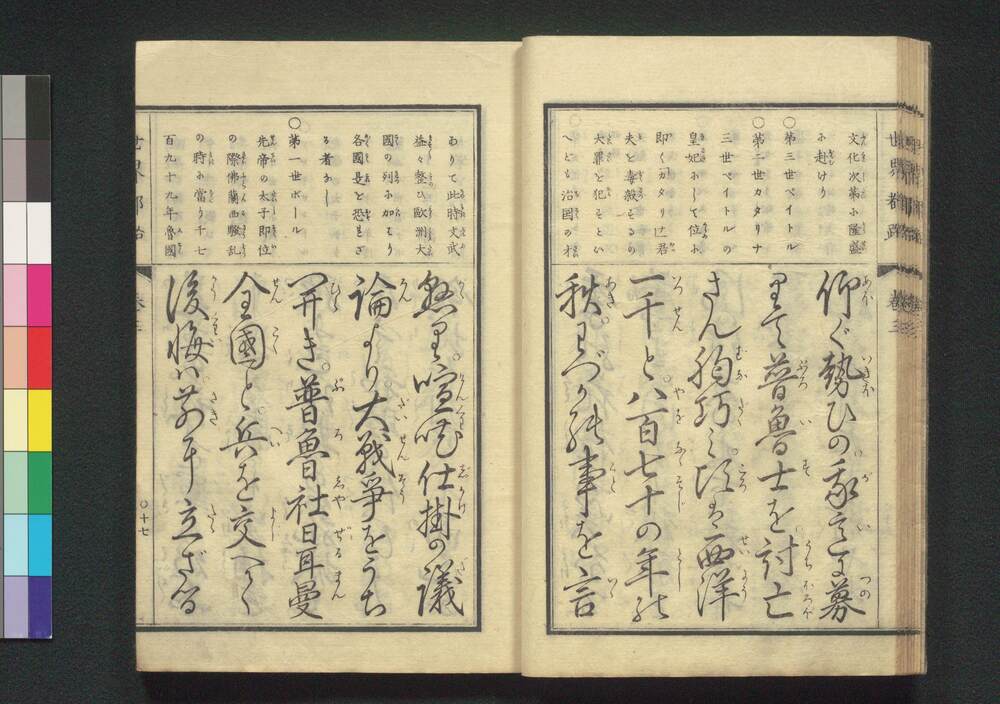 文化次第に隆盛
に赴けり
〇第三世ペイトル
〇第二世カタリナ
三世ペイトルの
皇妃にして位に
即くカタリナ君
夫を毒殺するの
大罪を犯すとい
へども治国の才
仰ぐ勢ひの我意に募
りて普魯士を討亡
さん胸巧み頃は西洋
一千と八百七十の年の
秋わづかの事を言
世界都路
巻三
ありて此時文武
益々整ひ欧洲大
國の列に加はり
各國是を恐れざ
る者なし
〇第一世ポール
先帝の太子即位
の際佛蘭西騒乱
の時に當り千七
百九十九年魯國
懸りて喧嘩仕掛の議
論より大戰爭をうち
開き普魯社日耳曼
全國と兵を交へしく
後悔は前に立ざる
〇十七